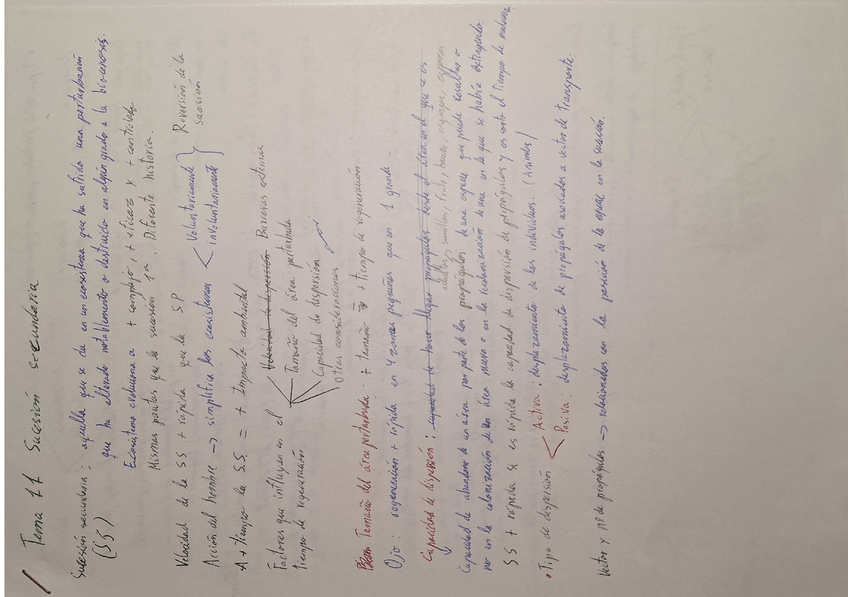 Tema 11 Sucesión secundaria
Sucesión secundaria: aquella que se da en un ecosistema que ha sufrido una perturbación
(SS) que ha alterado notablemente o destruido en algún grado a la biocenosis.
Ecosistema evoluciona a + complejo, + eficaz y + controlable
Mismas pautas que la sucesión 1ª. Diferente historia.
Velocidad de la SS + rápida que la SP
Acción del hombre → simplifica los ecosistemas Voluntariamente Involuntariamente } Reversión de la sucesión
A + tiempo la S.S. = + Impacto ambiental
Factores que influyen en el tiempo de regeneración
Velocidad de dispersión Barreras externas
Tamaño del área perturbada
Capacidad de dispersión
Otras consideraciones
Tamaño del área perturbada: + tamaño + tiempo de regeneración
Ojo: regeneración + rápida en 4 zonas pequeñas que en 1 grande.
Capacidad de dispersión: capacidad de hacer llegar propágulos desde el área en el que se es
Capacidad de abandono de un área por parte de los propágulos de una especie que puede resultar o
no en la colonización de un área nueva o en la recolonización de una en la que se había extinguido.
SS + rápida si es rápida la capacidad de dispersión de propágulos y es corto el tiempo de
• Tipo de dispersión
Activa: desplazamiento de los individuos. (Animales)
Pasiva: desplazamiento de propágulos asociados a vector de transporte.
Vector y nº de propágulos → relacionados con la posición de la especie en la sucesión.